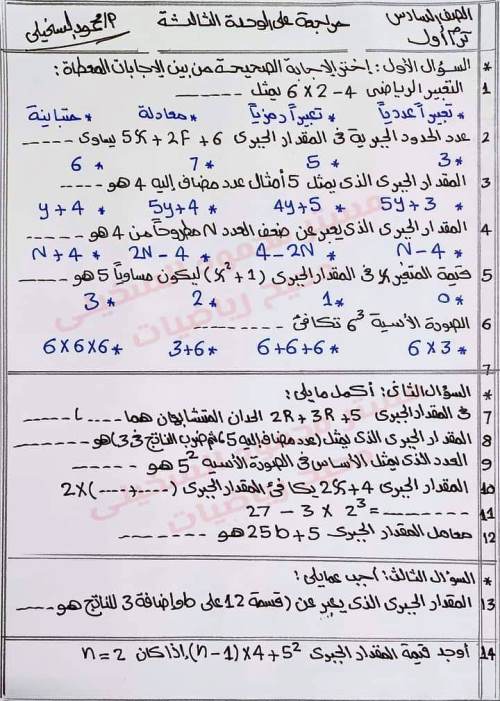 الصف السادس مراجعة على الوحدة الثالثة P/محمود السخيلى
ترم أول
* السؤال الأول: إختر الإجابة الصحيحة من بين الإجابات المعطاة:
1 التعبير الرياضى 4 - 2 × 6 يمثل ------
* تعبيراً عددياً * تعبيراً رمزياً * معادلة * متباينة
2 عدد الحدود الجبرية فى المقدار الجبرى 5x + 2F + 6 يساوى -----
* 3 * 5 * 7 * 6
3 المقدار الجبرى الذى يمثل 5 أمثال عدد مضاف إليه 4 هو -----
* 5y + 3 * 4y + 5 * 5y + 4 * y + 4
4 المقدار الجبرى الذى يعبر عن ضعف العدد N مطروحاً من 4 هو -----
* N - 4 * 4 - 2N * 2N - 4 * N + 4
5 قيمة المتغير x فى المقدار الجبرى (x² + 1) ليكون مساوياً 5 هو -----
* 0 * 1 * 2 * 3
6 الصورة الأسية 6³ تكافئ --------
* 6 × 3 * 6 + 6 + 6 * 3 + 6 * 6 × 6 × 6
7
* السؤال الثانى: أكمل ما يلى:
7 فى المقدار الجبرى 2R + 3R + 5 الحدان المتشابهان هما ----، -----
8 المقدار الجبرى الذى يمثل (عدد مضاف إليه 5، ثم ضرب الناتج 3,3) هو -----
9 العدد الذى يمثل الأساس فى الصورة الأسية 5² هو ------
10 المقدار الجبرى 2x + 4 يكافئ المقدار الجبرى 2 × (---- + ----)
11 27 - 3 × 2³ = --------
12 معامل المقدار الجبرى 25b + 5 هو --------
* السؤال الثالث: أجب عما يلى:
13 المقدار الجبرى الذى يعبر عن (قسمة 12 على b وإضافة 3 للناتج هو ----
14 أوجد قيمة المقدار الجبرى (n - 1) × 4 + 5²، إذا كان n = 2